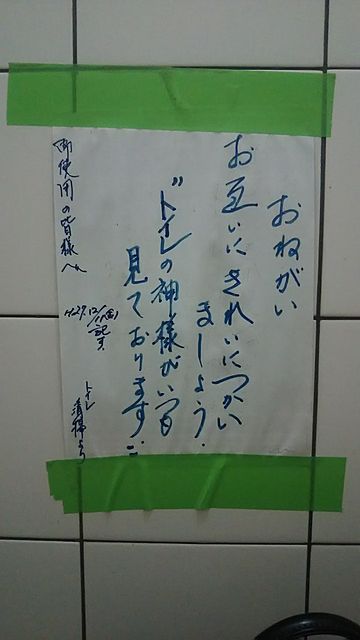 おねがい
お互いにきれいにつかい
ましょう.
"トイレの神様がいつも
見ております."
H27.12/11(金)
記ス
御使用の皆様へ
トイレ
清掃より